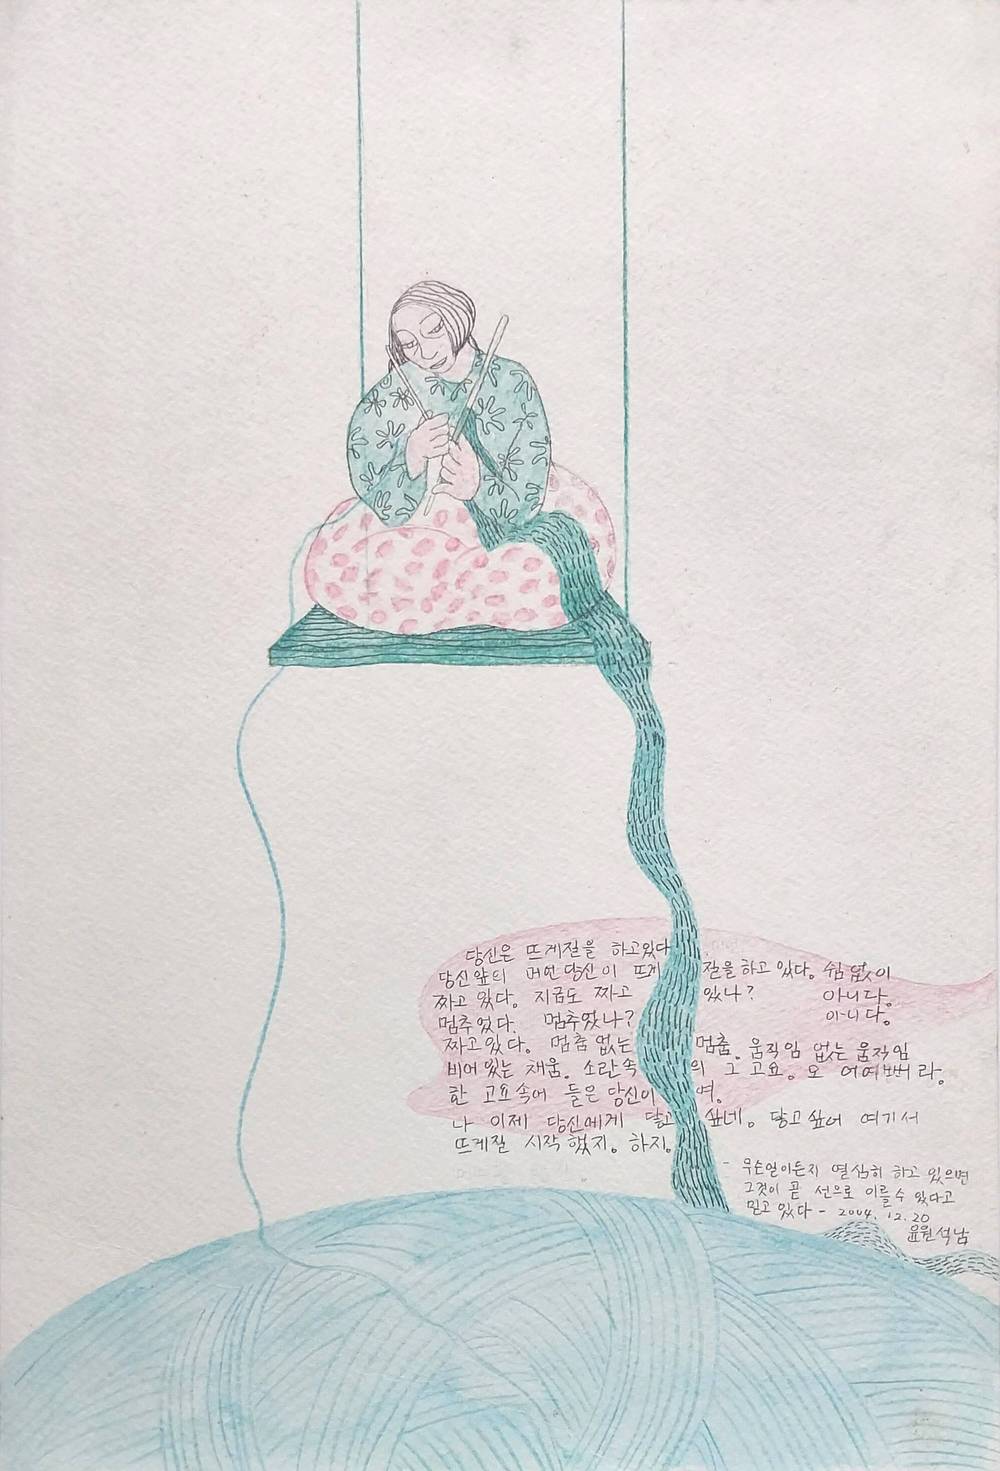 당신은 뜨게질을 하고있다
당신앞의 머언당신이 뜨게질을하고 있다. 쉼없이
짜고 있다. 지금도 짜고 있나? 아니다.
멈추었다. 멈추었나? 아니다.
짜고있다. 멈춤없는 멈춤. 움직임 없는 움직임
비어있는 채움. 소란속의 그 고요. 오 어여쁘라.
한 고요속에 들은 당신이여.
나 이제 당신에게 닿고싶네. 닿고싶어 여기서
뜨게질 시작했지. 하지.
- 무슨일이든지 열심히 하고 있으면
그것이 곧 선으로 이를수 있다고
믿고 있다 - 2004. 12. 20
윤석남